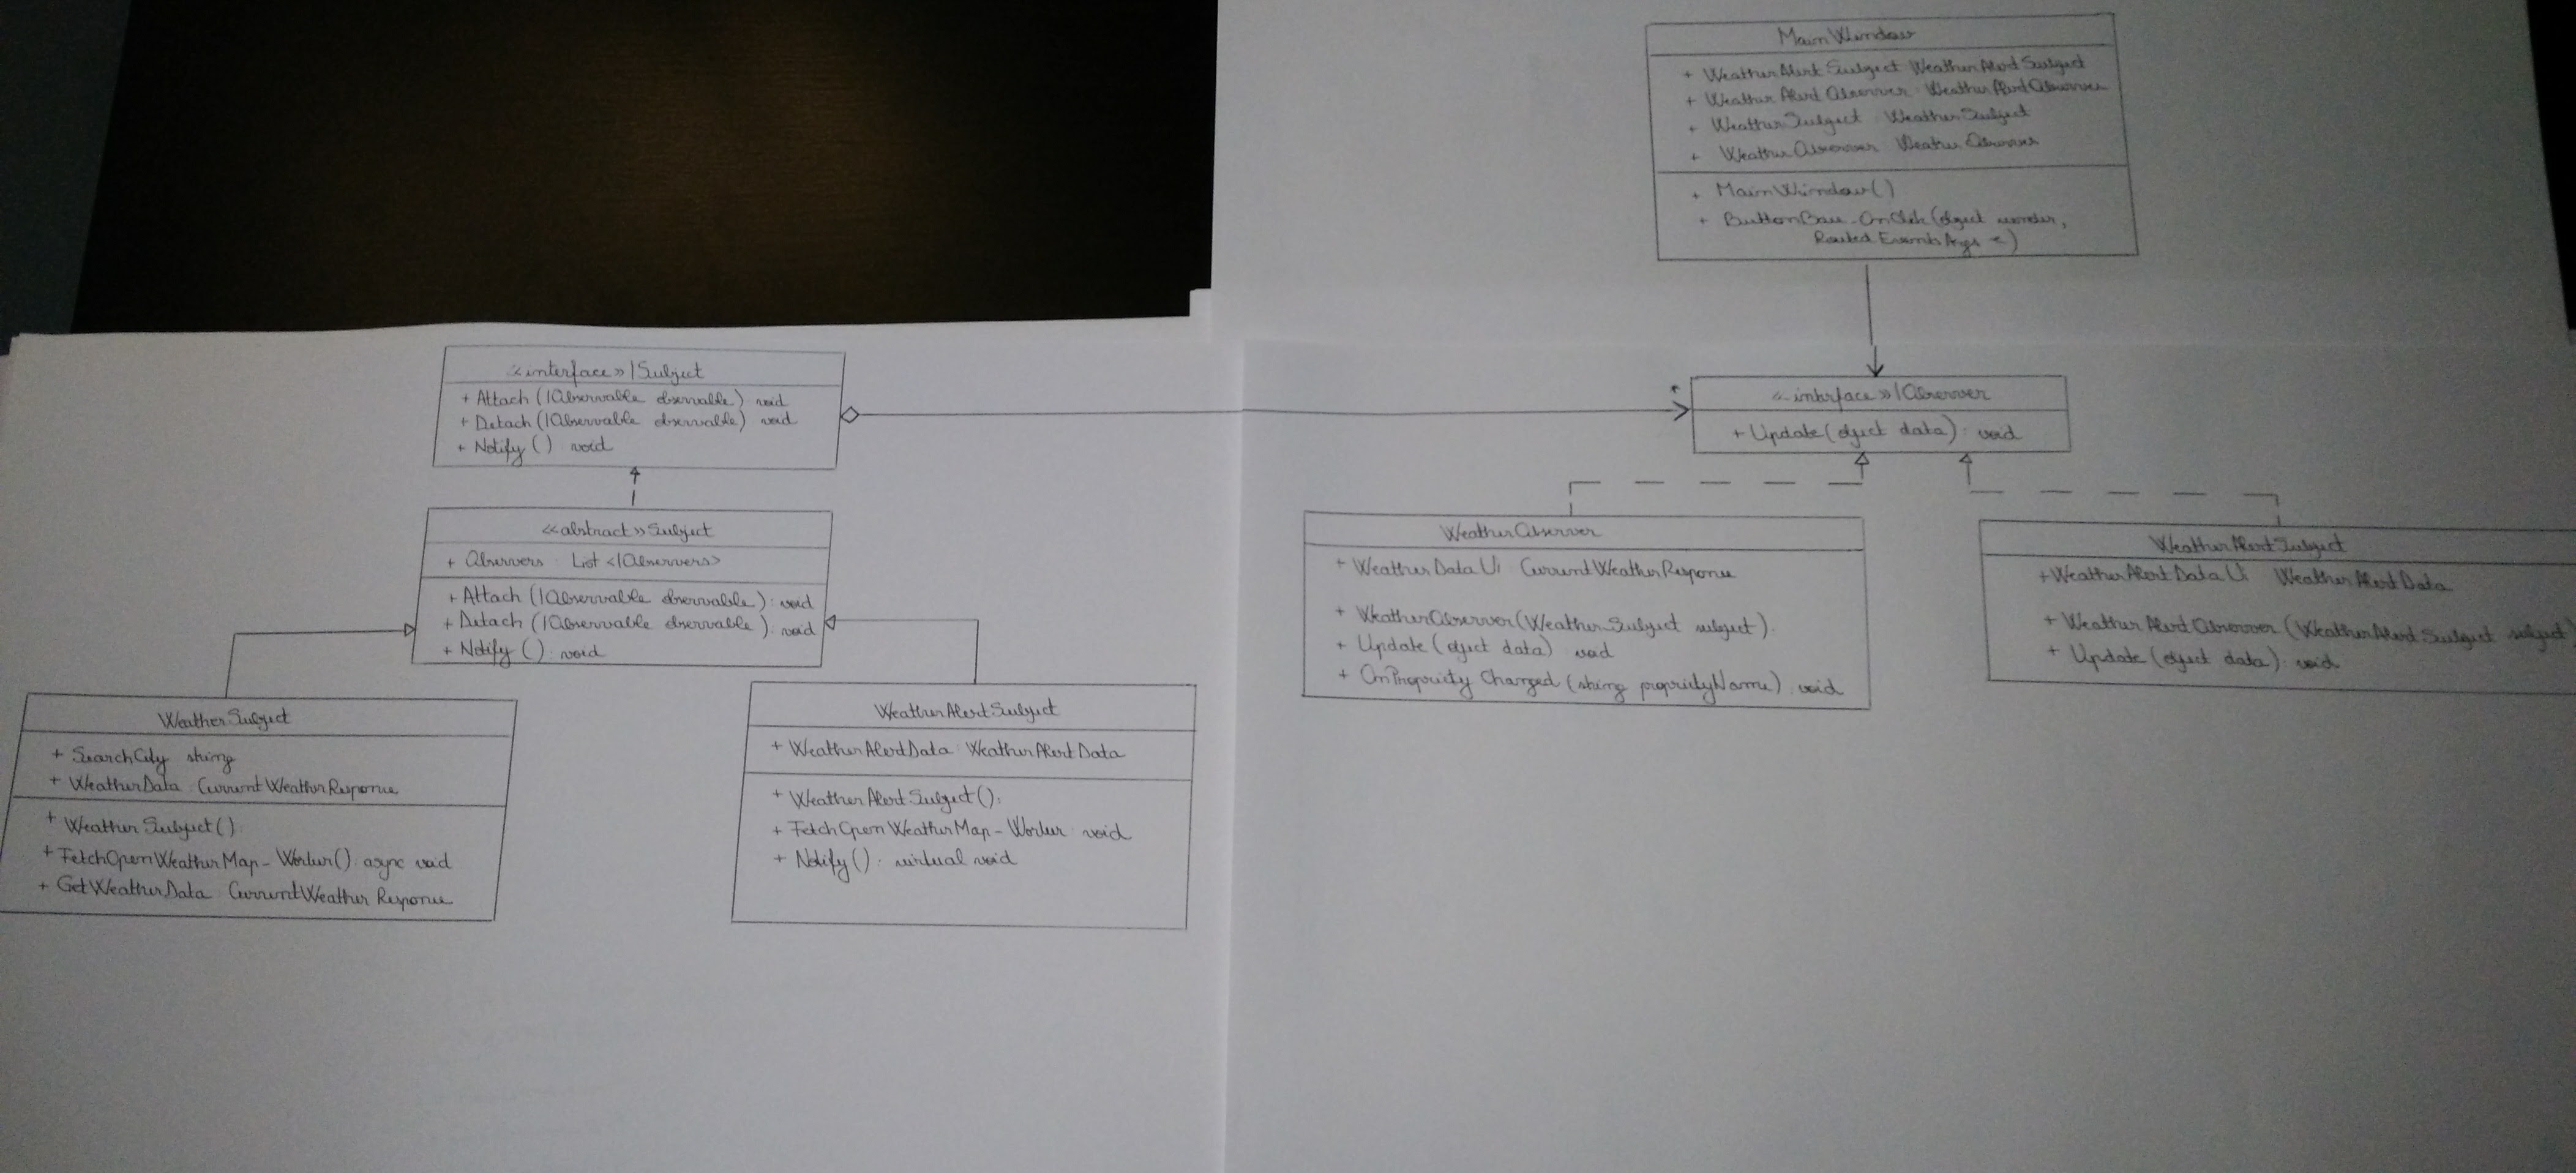 MainWindow
+ WeatherAlertSubject WeatherAlertSubject
+ WeatherAlertObserver : WeatherAlertObserver
+ WeatherSubject : WeatherSubject
+ WeatherObserver WeatherObserver
+ MainWindow()
+ ButtonBase_OnClick(object sender,
Routed Events Args e)
<<interface>> ISubject
+ Attach (IObservable observable) void
+ Detach (IObservable observable) void
+ Notify () void
*
<<interface>> IObserver
+ Update(object data) : void
<<abstract>> Subject
+ Observers : List <IObservers>
+ Attach (IObservable observable) : void
+ Detach (IObservable observable) : void
+ Notify () : void
WeatherObserver
+ WeatherDataUi CurrentWeatherResponse
+ WeatherObserver(WeatherSubject subject).
+ Update (object data) void
+ OnPropriety Changed (string proprietyName) : void
WeatherAlertSubject
+ WeatherAlertDataUi WeatherAlertData
+ WeatherAlertObserver (WeatherAlertSubject subject)
+ Update (object data) : void
WeatherSubject
+ SearchCity string
+ WeatherData : CurrentWeatherResponse
+ WeatherSubject()
+ FetchOpenWeatherMap_Worker() : async void
+ GetWeatherData : CurrentWeather Response
WeatherAlertSubject
+ WeatherAlertData : WeatherAlertData
+ WeatherAlertSubject():
+ FetchOpenWeatherMap_Worker : void
+ Notify() : virtual void